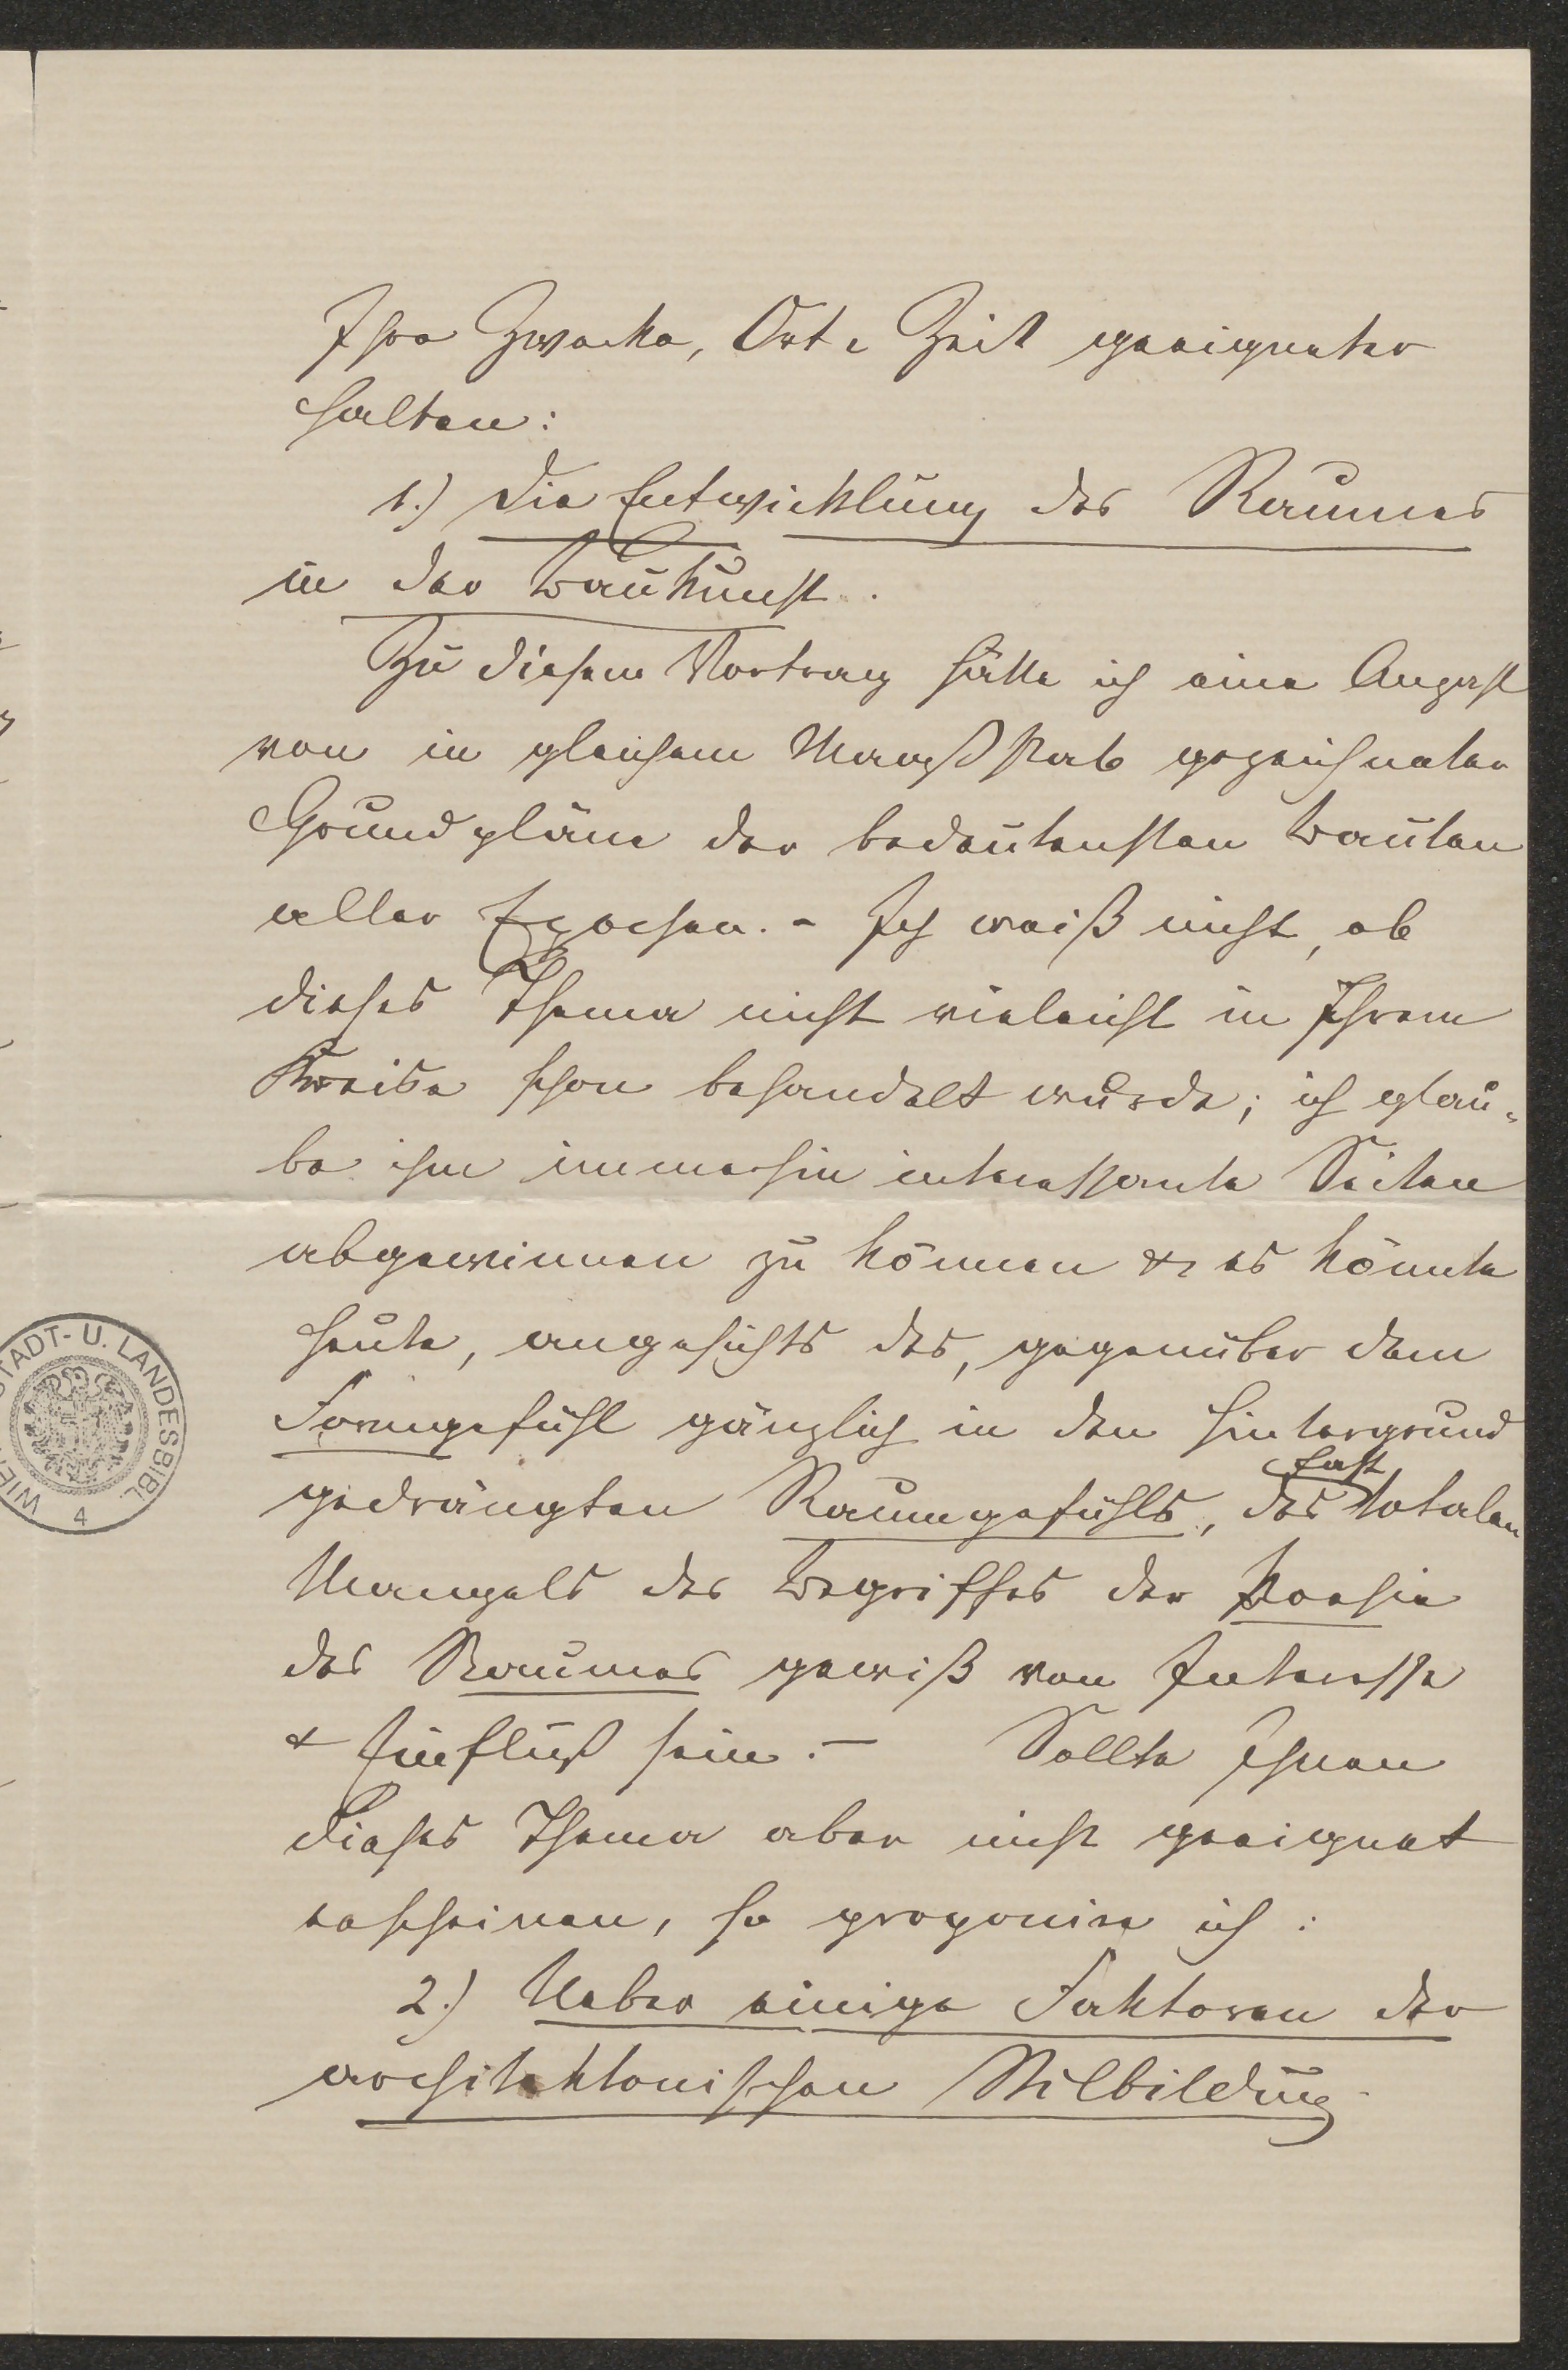 Ihre Zwecke, Ort & Zeit geeigneter
halten:
1.) Die Entwicklung des Raumes
in der Baukunst.
Zu diesem Vortrag hätte ich eine Anzahl
von in gleichem Maaßstab gezeichneter
Grundpläne der bedeutensten Bauten
aller Epochen. - Ich weiß nicht, ob
dieses Thema nicht vieleicht in Ihrem
Kreise schon behandelt wurde; ich glau-
be ihm immerhin interessante Seiten
abgewinnen zu können & es könnte
heute, angesichts des, gegenüber dem
Formgefühl gänzlich in den Hintergrund
gedrängten Raumgefühls, des fast totalen
Mangels des Begriffes der Poesie
des Raumes gewiß von Interesse
& Einfluß sein. – Sollte Ihnen
dieses Thema aber nicht geeignet
erscheinen, so proponire ich:
2.) Ueber einige Faktoren der
architektonischen Stilbildung.
STADT- U. LANDESBIBL.
WIEN
4